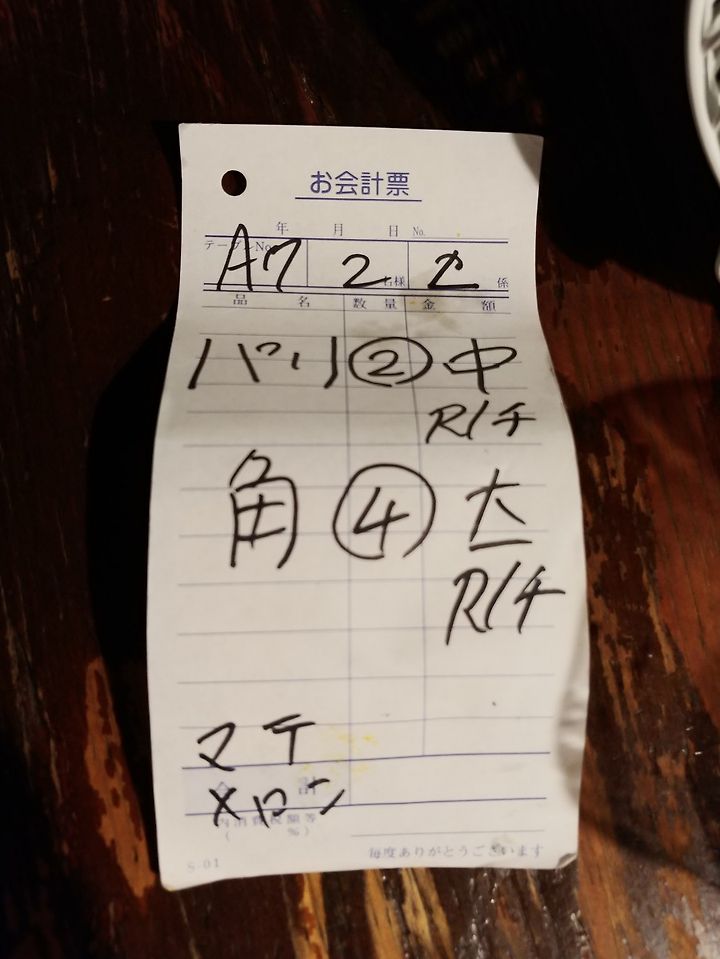 お会計票
年 月 日 No.
テーブルNo. A7 2名様 係
品 名 数 量 金 額
パリ ② 中
R/チ
角 ④ 大
R/チ
マチ
合 計
メロン
内消費税額等
( %)
毎度ありがとうございます
S.01